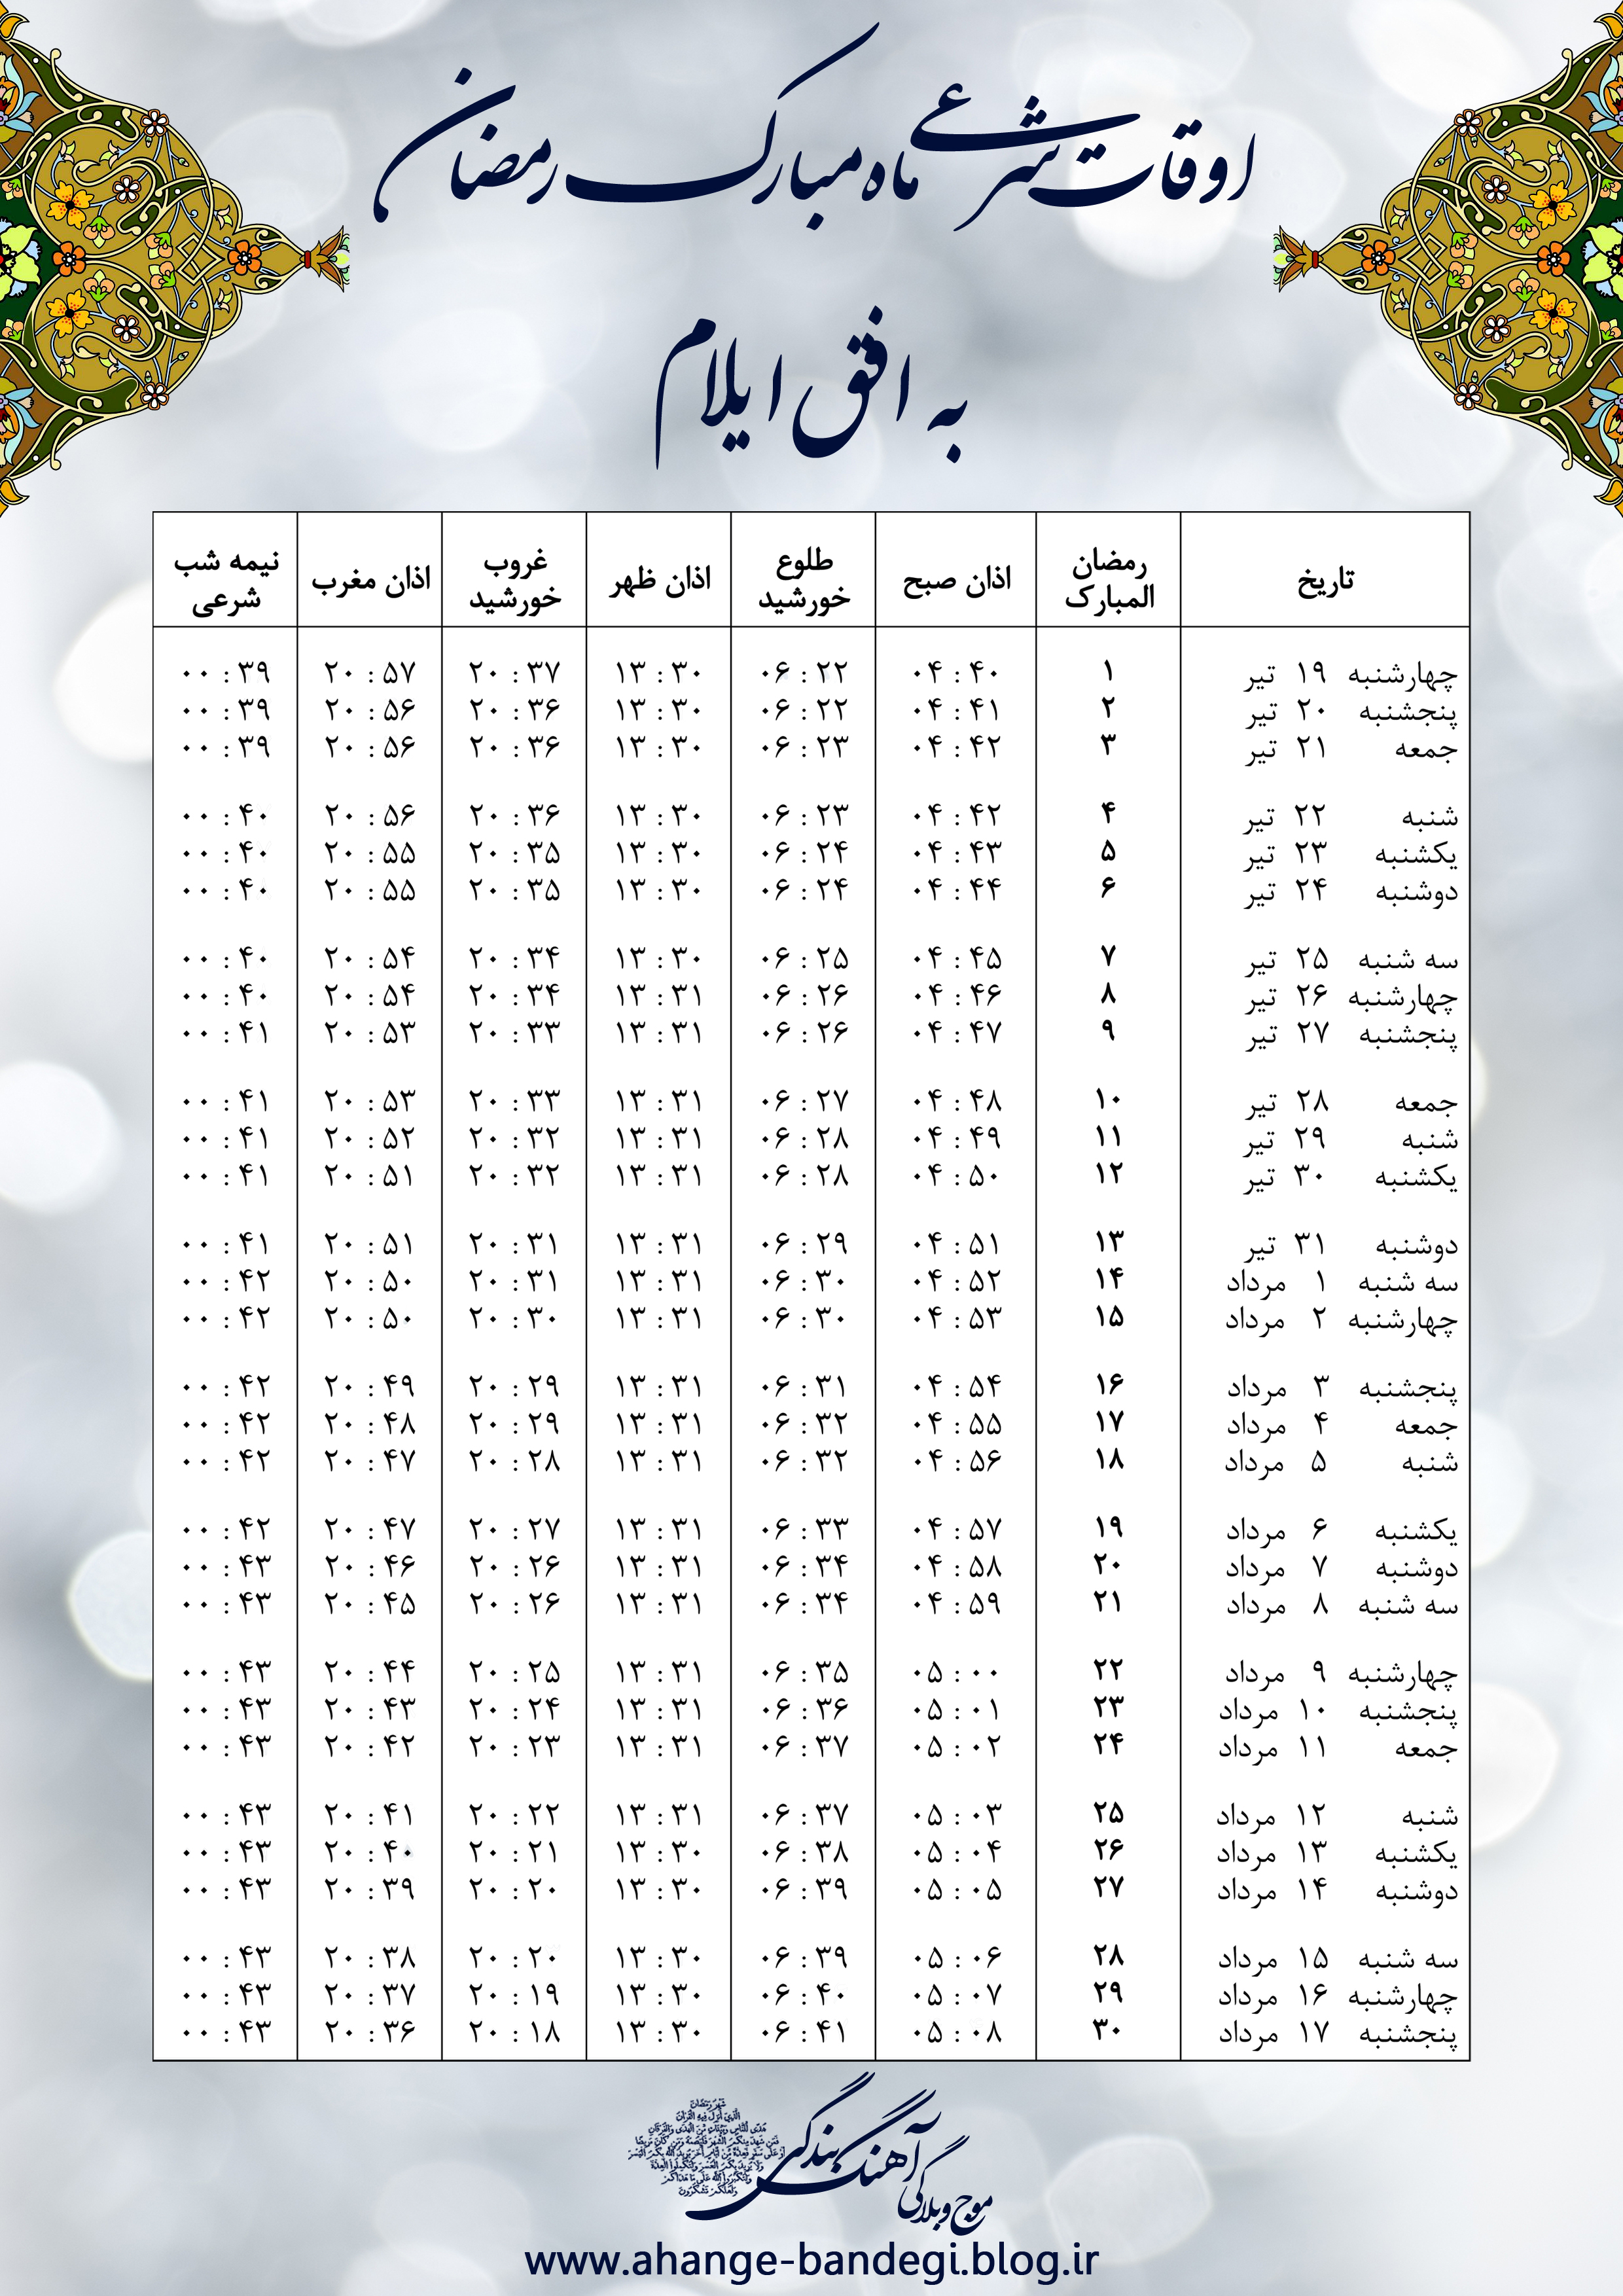 اوقات شرعی ماه مبارک رمضان
به افق ایلام
تاریخ رمضان المبارک اذان صبح طلوع خورشید اذان ظهر غروب خورشید اذان مغرب نیمه شب شرعی
چهارشنبه ۱۹ تیر ۱ ۰۴:۴۰ ۰۶:۲۲ ۱۳:۳۰ ۲۰:۳۷ ۲۰:۵۷ ۰۰:۳۹
پنجشنبه ۲۰ تیر ۲ ۰۴:۴۱ ۰۶:۲۲ ۱۳:۳۰ ۲۰:۳۶ ۲۰:۵۶ ۰۰:۳۹
جمعه ۲۱ تیر ۳ ۰۴:۴۲ ۰۶:۲۳ ۱۳:۳۰ ۲۰:۳۶ ۲۰:۵۶ ۰۰:۳۹
شنبه ۲۲ تیر ۴ ۰۴:۴۲ ۰۶:۲۳ ۱۳:۳۰ ۲۰:۳۶ ۲۰:۵۶ ۰۰:۴۰
یکشنبه ۲۳ تیر ۵ ۰۴:۴۳ ۰۶:۲۴ ۱۳:۳۰ ۲۰:۳۵ ۲۰:۵۵ ۰۰:۴۰
دوشنبه ۲۴ تیر ۶ ۰۴:۴۴ ۰۶:۲۴ ۱۳:۳۰ ۲۰:۳۵ ۲۰:۵۵ ۰۰:۴۰
سه شنبه ۲۵ تیر ۷ ۰۴:۴۵ ۰۶:۲۵ ۱۳:۳۰ ۲۰:۳۴ ۲۰:۵۴ ۰۰:۴۰
چهارشنبه ۲۶ تیر ۸ ۰۴:۴۶ ۰۶:۲۶ ۱۳:۳۱ ۲۰:۳۴ ۲۰:۵۴ ۰۰:۴۰
پنجشنبه ۲۷ تیر ۹ ۰۴:۴۷ ۰۶:۲۶ ۱۳:۳۱ ۲۰:۳۳ ۲۰:۵۳ ۰۰:۴۱
جمعه ۲۸ تیر ۱۰ ۰۴:۴۸ ۰۶:۲۷ ۱۳:۳۱ ۲۰:۳۳ ۲۰:۵۳ ۰۰:۴۱
شنبه ۲۹ تیر ۱۱ ۰۴:۴۹ ۰۶:۲۸ ۱۳:۳۱ ۲۰:۳۲ ۲۰:۵۲ ۰۰:۴۱
یکشنبه ۳۰ تیر ۱۲ ۰۴:۵۰ ۰۶:۲۸ ۱۳:۳۱ ۲۰:۳۲ ۲۰:۵۱ ۰۰:۴۱
دوشنبه ۳۱ تیر ۱۳ ۰۴:۵۱ ۰۶:۲۹ ۱۳:۳۱ ۲۰:۳۱ ۲۰:۵۱ ۰۰:۴۱
سه شنبه ۱ مرداد ۱۴ ۰۴:۵۲ ۰۶:۳۰ ۱۳:۳۱ ۲۰:۳۱ ۲۰:۵۰ ۰۰:۴۲
چهارشنبه ۲ مرداد ۱۵ ۰۴:۵۳ ۰۶:۳۰ ۱۳:۳۱ ۲۰:۳۰ ۲۰:۵۰ ۰۰:۴۲
پنجشنبه ۳ مرداد ۱۶ ۰۴:۵۴ ۰۶:۳۱ ۱۳:۳۱ ۲۰:۲۹ ۲۰:۴۹ ۰۰:۴۲
جمعه ۴ مرداد ۱۷ ۰۴:۵۵ ۰۶:۳۲ ۱۳:۳۱ ۲۰:۲۹ ۲۰:۴۸ ۰۰:۴۲
شنبه ۵ مرداد ۱۸ ۰۴:۵۶ ۰۶:۳۲ ۱۳:۳۱ ۲۰:۲۸ ۲۰:۴۷ ۰۰:۴۲
یکشنبه ۶ مرداد ۱۹ ۰۴:۵۷ ۰۶:۳۳ ۱۳:۳۱ ۲۰:۲۷ ۲۰:۴۷ ۰۰:۴۲
دوشنبه ۷ مرداد ۲۰ ۰۴:۵۸ ۰۶:۳۴ ۱۳:۳۱ ۲۰:۲۶ ۲۰:۴۶ ۰۰:۴۳
سه شنبه ۸ مرداد ۲۱ ۰۴:۵۹ ۰۶:۳۴ ۱۳:۳۱ ۲۰:۲۶ ۲۰:۴۵ ۰۰:۴۳
چهارشنبه ۹ مرداد ۲۲ ۰۵:۰۰ ۰۶:۳۵ ۱۳:۳۱ ۲۰:۲۵ ۲۰:۴۴ ۰۰:۴۳
پنجشنبه ۱۰ مرداد ۲۳ ۰۵:۰۱ ۰۶:۳۶ ۱۳:۳۱ ۲۰:۲۴ ۲۰:۴۳ ۰۰:۴۳
جمعه ۱۱ مرداد ۲۴ ۰۵:۰۲ ۰۶:۳۷ ۱۳:۳۱ ۲۰:۲۳ ۲۰:۴۲ ۰۰:۴۳
شنبه ۱۲ مرداد ۲۵ ۰۵:۰۳ ۰۶:۳۷ ۱۳:۳۱ ۲۰:۲۲ ۲۰:۴۱ ۰۰:۴۳
یکشنبه ۱۳ مرداد ۲۶ ۰۵:۰۴ ۰۶:۳۸ ۱۳:۳۰ ۲۰:۲۱ ۲۰:۴۰ ۰۰:۴۳
دوشنبه ۱۴ مرداد ۲۷ ۰۵:۰۵ ۰۶:۳۹ ۱۳:۳۰ ۲۰:۲۰ ۲۰:۳۹ ۰۰:۴۳
سه شنبه ۱۵ مرداد ۲۸ ۰۵:۰۶ ۰۶:۳۹ ۱۳:۳۰ ۲۰:۲۰ ۲۰:۳۸ ۰۰:۴۳
چهارشنبه ۱۶ مرداد ۲۹ ۰۵:۰۷ ۰۶:۴۰ ۱۳:۳۰ ۲۰:۱۹ ۲۰:۳۷ ۰۰:۴۳
پنجشنبه ۱۷ مرداد ۳۰ ۰۵:۰۸ ۰۶:۴۱ ۱۳:۳۰ ۲۰:۱۸ ۲۰:۳۶ ۰۰:۴۳
موج وبلاگی آهنگ بندگی
www.ahange-bandegi.blog.ir